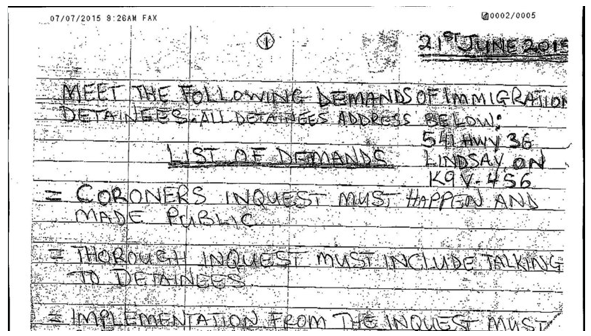 07/07/2015 8:26AM FAX
0002/0005
1
21ST JUNE 2015
MEET THE FOLLOWING DEMANDS OF IMMIGRATION
DETAINEES. ALL DETAINEES ADDRESS BELOW:
541 HWY 36
LIST OF DEMANDS LINDSAY, ON
K9V. 4S6
= CORONERS INQUEST MUST HAPPEN AND
MADE PUBLIC
= THOROUGH INQUEST MUST INCLUDE TALKING
TO DETAINEES
= IMPLEMENTATION FROM THE INQUEST MUST